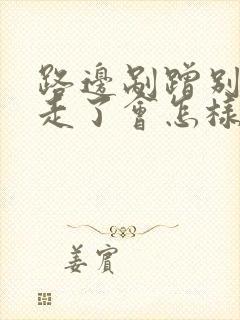 路邊剮蹭別
走了會怎樣
姜賓